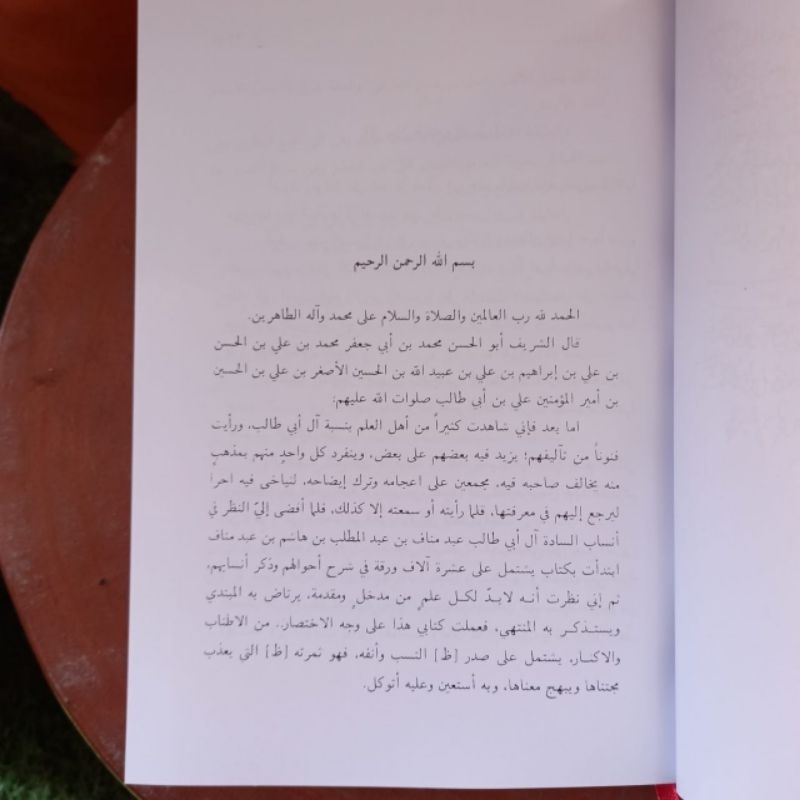 بسم الله الرحمن الرحيم
الحمد لله رب العالمين والصلاة والسلام على محمد وآله الطاهرين.
قال الشريف أبو الحسن محمد بن أبي جعفر محمد بن علي بن الحسن
بن علي بن إبراهيم بن علي بن عبيد الله بن الحسين الأصغر بن علي بن الحسين
بن أمير المؤمنين علي بن أبي طالب صلوات الله عليهم:
اما بعد فإني شاهدت كثيراً من أهل العلم بنسبة آل أبي طالب، ورأيت
فنوناً من تآليفهم؛ يزيد فيه بعضهم على بعض، وينفرد كل واحدٍ منهم بمذهبٍ
منه يخالف صاحبه فيه، مجمعين على اعجامه وترك إيضاحه، لنياخى فيه احرا
ليرجع إليهم في معرفتها، فلما رأيته أو سمعته إلا كذلك، فلما أفضى إليّ النظر في
أنساب السادة آل أبي طالب عبد مناف بن عبد المطلب بن هاشم بن عبد مناف
ابتدأت بكتاب يشتمل على عشرة آلاف ورقة في شرح أحوالهم وذكر أنسابهم،
ثم إني نظرت أنه لابدّ لكل علمٍ من مدخلٍ ومقدمة، يرتاض به المبتدي
ويستذكر به المنتهي، فعملت كتابي هذا على وجه الاختصار.. من الاطناب
والاكثار، يشتمل على صدر [ظ] النسب وأنفه، فهو ثمرته [ظ] التي يعذب
مجتناها ويبهج معناها، وبه أستعين وعليه أتوكل.